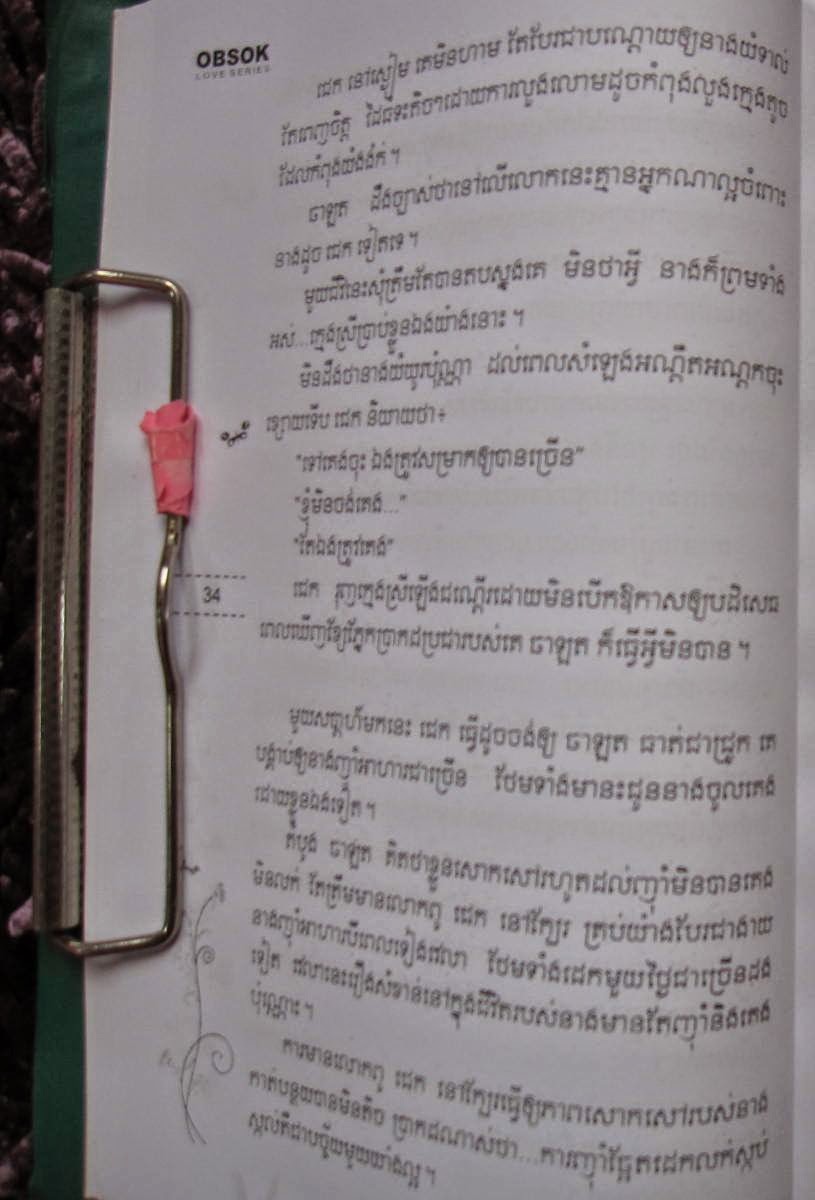 OBSOK
LOVE SERIES
ជេក នៅស្ងៀម គេមិនហាម តែបែរជាបណ្ដោយឲ្យនាងយំទាល់
តែពេញចិត្ត ដៃធទះតិចៗដោយការលួងលោមដូចកំពុងលួងក្មេងតូច
ដែលកំពុងយំងំក់ ។
ចាឡុត ដឹងច្បាស់ថានៅលើលោកនេះគ្មានអ្នកណាល្អចំពោះ
នាងដូច ជេក ទៀតទេ ។
មួយជីវិតនេះសុំត្រឹមតែបានតបស្នងគេ មិនថាអ្វី នាងក៏ព្រមទាំង
អស់...ក្មេងស្រីប្រាប់ខ្លួនឯងយ៉ាងនោះ ។
មិនដឹងថានាងយំយូរប៉ុណ្ណា ដល់ពេលសំឡេងអណ្ដឺតអណ្ដកចុះ
ខ្សោយទើប ជេក និយាយថា៖
“ទៅគេងចុះ ឯងត្រូវសម្រាកឲ្យបានច្រើន”
“ខ្ញុំមិនចង់គេង...”
“តែឯងត្រូវគេង”
34
ជេក រុញក្មេងស្រីឡើងជណ្ដើរដោយមិនបើកឱកាសឲ្យបដិសេធ
ពេលឃើញខ្សែភ្នែកប្រាកដប្រជារបស់គេ ចាឡុត ក៏ធ្វើអ្វីមិនបាន ។
មួយសប្ដាហ៍មកនេះ ជេក ធ្វើដូចចង់ឲ្យ ចាឡុត ធាត់ជាជ្រូក គេ
បង្គាប់ឲ្យនាងញ៉ាំអាហារជាច្រើន ថែមទាំងមានះជូននាងចូលគេង
ដោយខ្លួនឯងទៀត ។
តំបូង ចាឡុត គិតថាខ្លួនសោកសៅរហូតដល់ញ៉ាំមិនបានគេង
មិនលក់ តែត្រឹមមានលោកពូ ជេក នៅក្បែរ គ្រប់យ៉ាងបែរជាងាយ
នាងញ៉ាំអាហារបីពេលទៀងវេលា ថែមទាំងដេកមួយថ្ងៃជាច្រើនដង
ទៀត វេលានេះរឿងសំខាន់នៅក្នុងជីវិតរបស់នាងមានតែញ៉ាំនិងគេង
ប៉ុណ្ណោះ ។
ការមានលោកពូ ជេក នៅក្បែរធ្វើឲ្យភាពសោកសៅរបស់នាង
កាត់បន្ថយបានមិនតិច ប្រាកដណាស់ថា...ការញ៉ាំឆ្អែតដេកលក់ស្កប់
ស្កល់គឺជាបច្ច័យមួយយ៉ាងល្អ ។